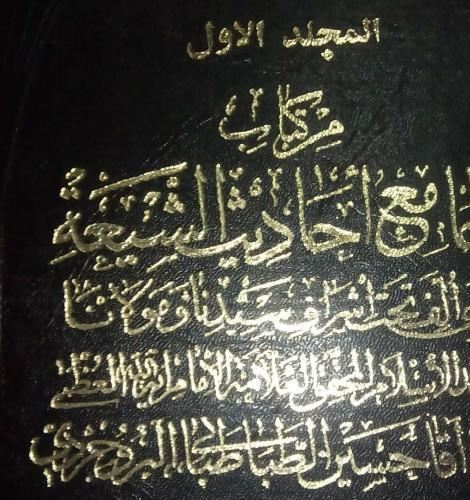 المجلد الاول
من كتاب
جامع أحاديث الشيعة
ألف تحت اشراف سيدنا ومولانا
الاسلام المحقق العلامة الامام آية الله العظمى
آقا حسين الطباطبائي البروجردي